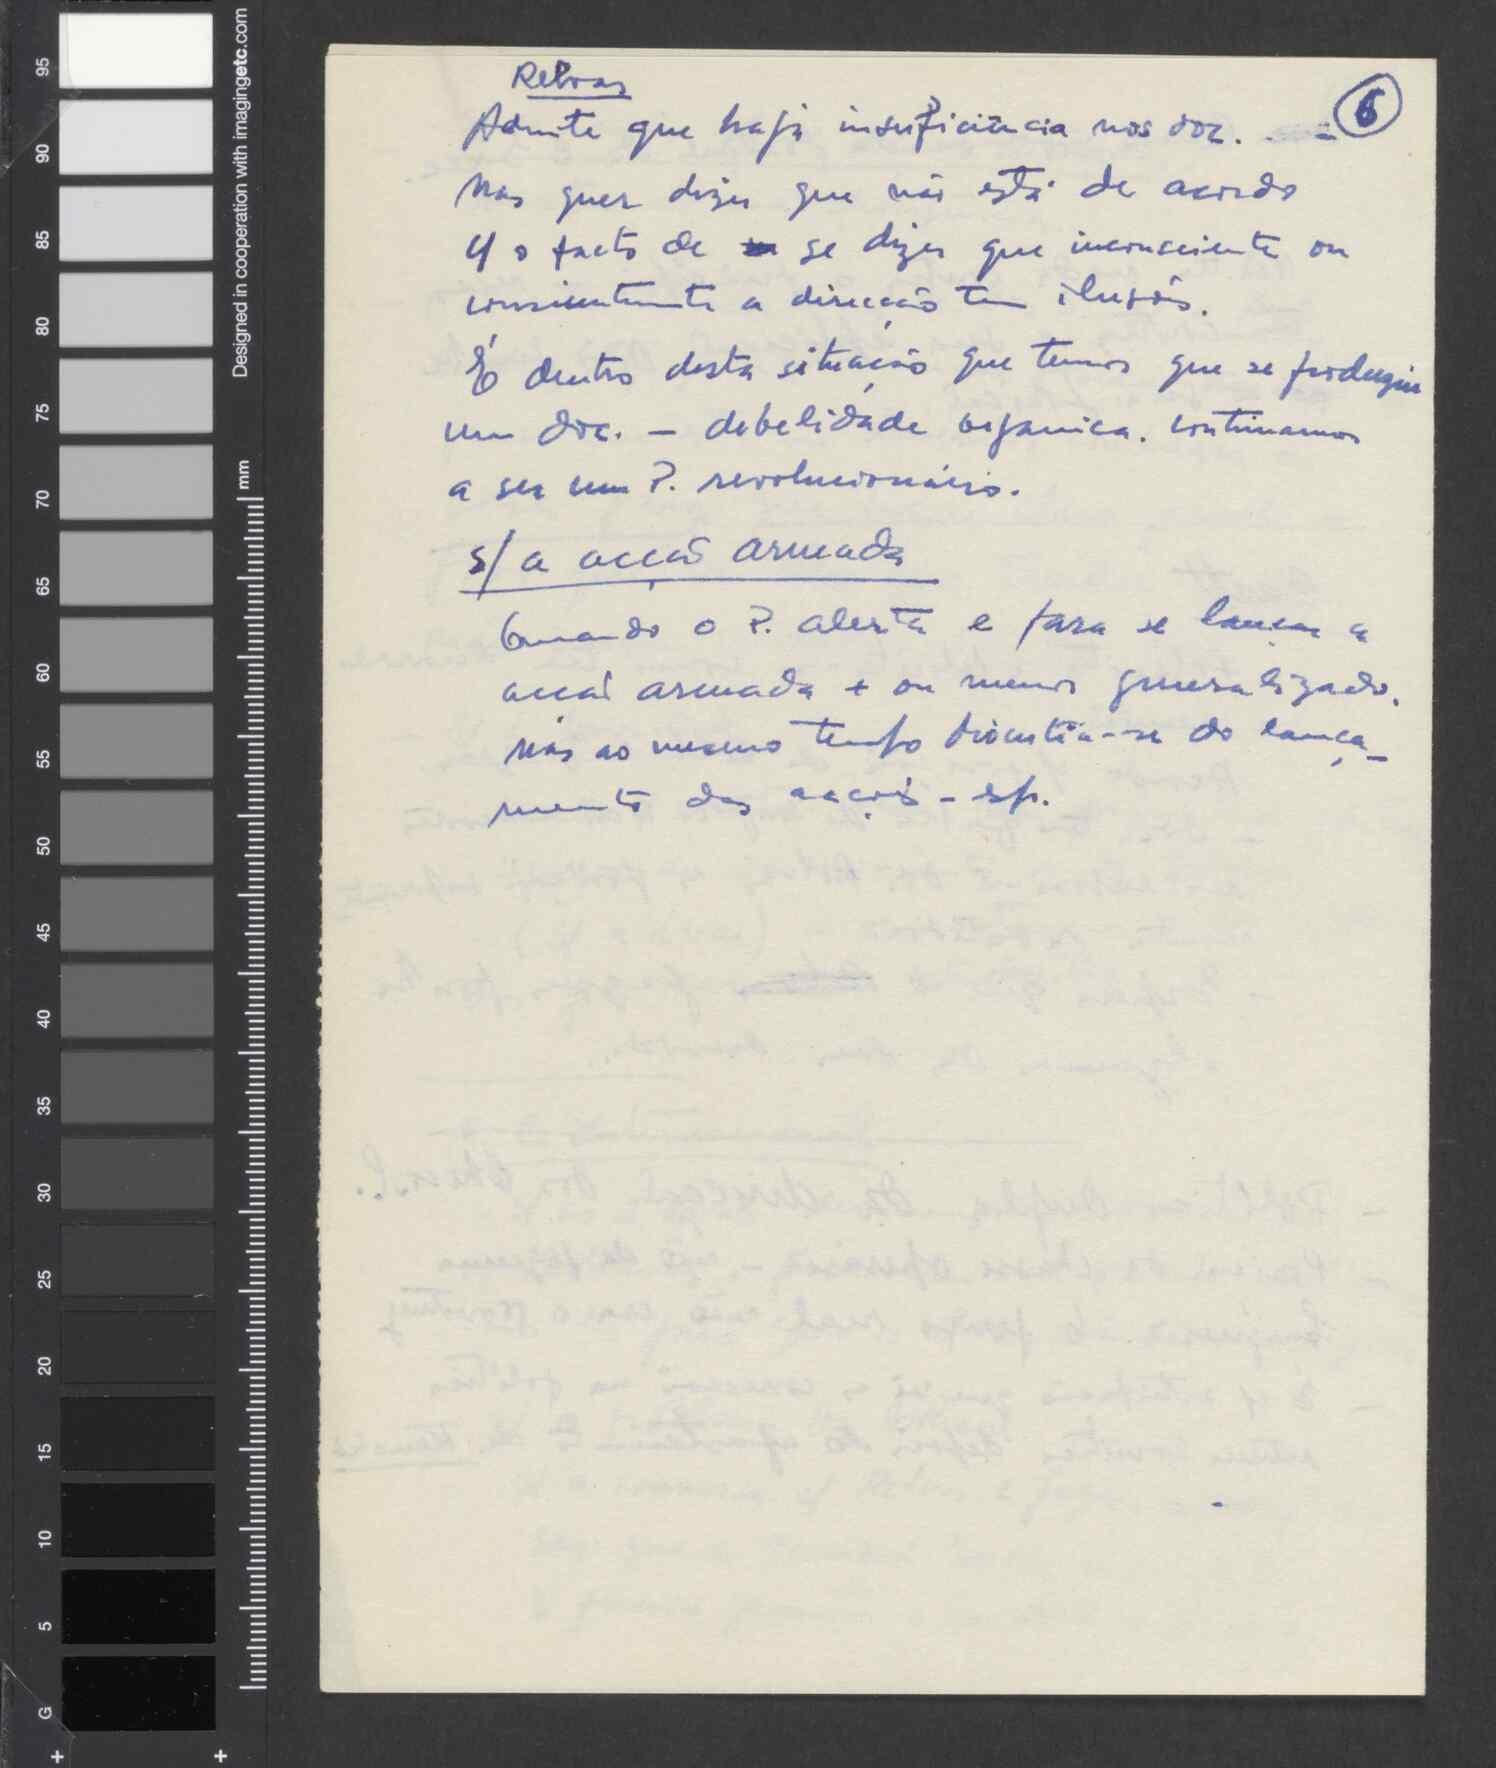 Relvas
6
Admite que haja insuficiência nos doc.
Mas quer dizer que não está de acordo
c/ o facto de se dizer que inconsciente ou
conscientemente a direcção tem ilusões.
É dentro desta situação que temos que se produziu
um doc. - debelidade organica. Continuamos
a ser um P. revolucionário.
s/ a acção armada
Quando o P. alerta e para se lançar a
acção armada + ou menos generalizado.
Mas ao mesmo tempo discutia-se do lança-
mento das acções - esp.
Designed in cooperation with imagingetc.com
mm
95
90
85
80
75
70
65
60
55
50
45
40
35
30
25
20
15
10
5
G